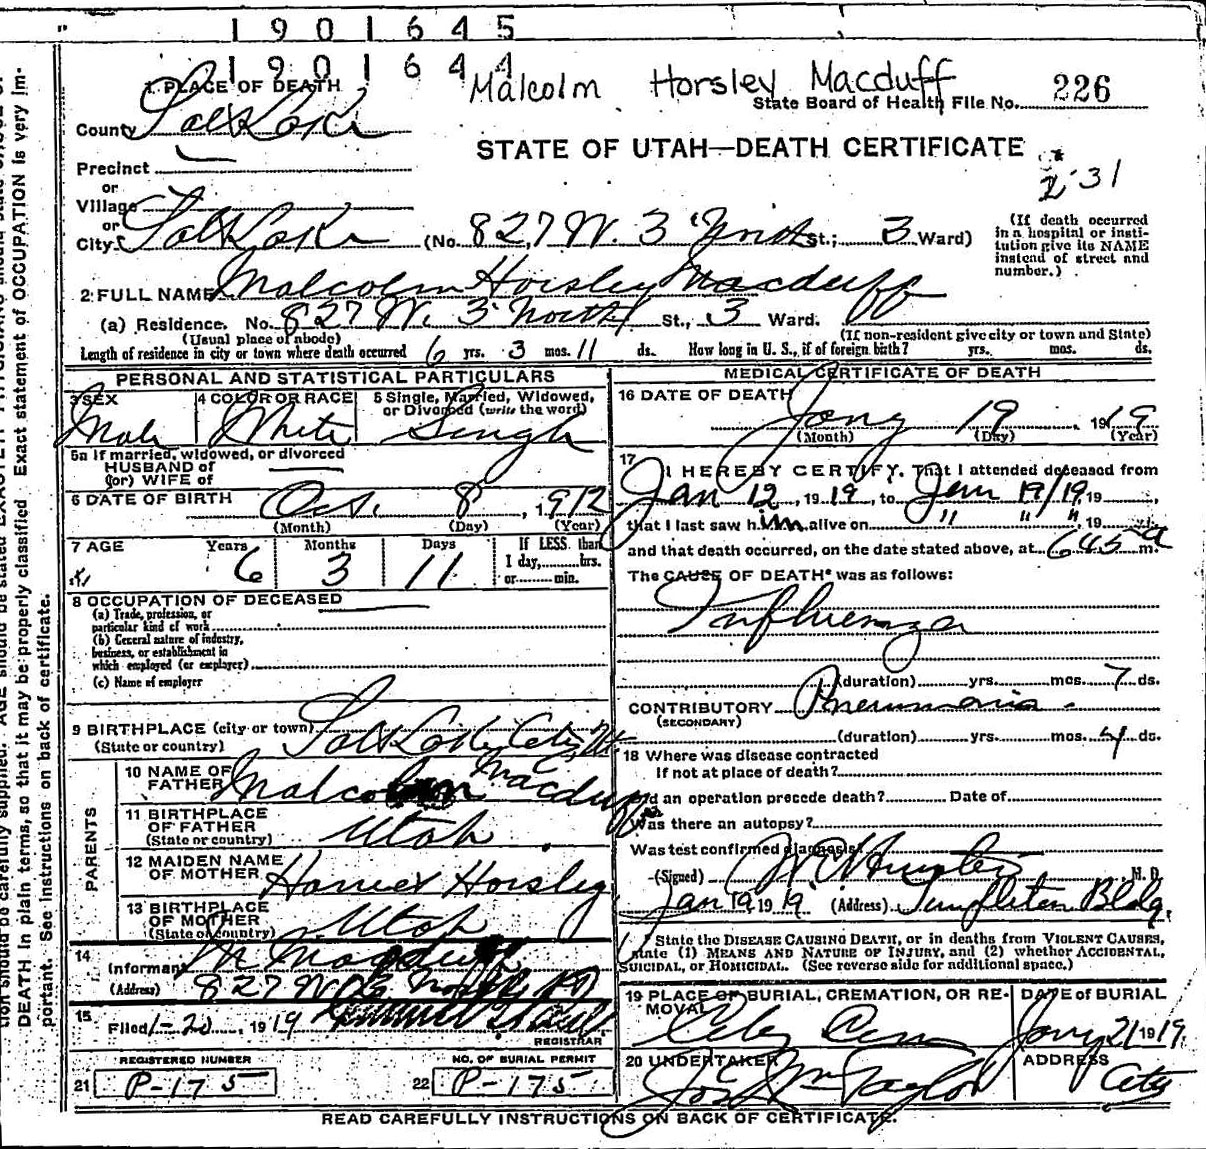 1901645
1901644
Malcolm Horsley Macduff
1 PLACE OF DEATH
State Board of Health File No. 226
County Salt Lake
STATE OF UTAH—DEATH CERTIFICATE
Precinct
2-31
or
Village
or
City Salt Lake (No. 827 W. 3 North St.; 3 Ward)
(If death occurred in a hospital or insti-
tution give its NAME instead of street and number.)
2 FULL NAME Malcolm Horsley Macduff
(a) Residence. No. 827 W. 3 North St., 3 Ward.
(Usual place of abode) (If non-resident give city or town and State)
Length of residence in city or town where death occurred 6 yrs. 3 mos. 11 ds. How long in U. S., if of foreign birth? yrs. mos. ds.
PERSONAL AND STATISTICAL PARTICULARS
3 SEX Male
4 COLOR OR RACE White
5 Single, Married, Widowed, or Divorced (write the word) Single
5a If married, widowed, or divorced
HUSBAND of
(or) WIFE of
6 DATE OF BIRTH Oct. 8, 1912
(Month) (Day) (Year)
7 AGE Years 6 Months 3 Days 11
If LESS than 1 day, hrs. or min.
8 OCCUPATION OF DECEASED
(a) Trade, profession, or particular kind of work
(b) General nature of industry, business, or establishment in which employed (or employer)
(c) Name of employer
9 BIRTHPLACE (city or town) Salt Lake City, Ut
(State or country)
PARENTS
10 NAME OF FATHER Malcolm Macduff
11 BIRTHPLACE OF FATHER Utah
(State or country)
12 MAIDEN NAME OF MOTHER Harriet Horsley
13 BIRTHPLACE OF MOTHER Utah
(State or country)
14 Informant M Macduff
(Address) 827 W
15 Filed 1-20, 1919
REGISTRAR
REGISTERED NUMBER
21 P-175
NO. OF BURIAL PERMIT
22 P-175
MEDICAL CERTIFICATE OF DEATH
16 DATE OF DEATH Jany 19 1919
(Month) (Day) (Year)
17 I HEREBY CERTIFY, That I attended deceased from
Jan 12, 1919, to Jan 19/19 19,
that I last saw him alive on " " " 19
and that death occurred, on the date stated above, at 645 a m.
The CAUSE OF DEATH* was as follows:
Influenza
(duration) yrs. mos. 7 ds.
CONTRIBUTORY Pneumonia.
(SECONDARY)
(duration) yrs. mos. 4 ds.
18 Where was disease contracted
If not at place of death?
Did an operation precede death? Date of
Was there an autopsy?
Was test confirmed diagnosis?
(Signed) M. D.
Jan 19 1919 (Address) Templeton Bldg.
State the DISEASE CAUSING DEATH, or in deaths from VIOLENT CAUSES,
state (1) MEANS AND NATURE OF INJURY, and (2) whether ACCIDENTAL,
SUICIDAL, or HOMICIDAL. (See reverse side for additional space.)
19 PLACE OF BURIAL, CREMATION, OR RE-
MOVAL City Cem
DATE of BURIAL
Jany 21 1919
20 UNDERTAKER Jos Wm Taylor
ADDRESS City
READ CAREFULLY INSTRUCTIONS ON BACK OF CERTIFICATE.
DEATH in plain terms, so that it may be properly classified. Exact statement of OCCUPATION is very im-
portant. See instructions on back of certificate.